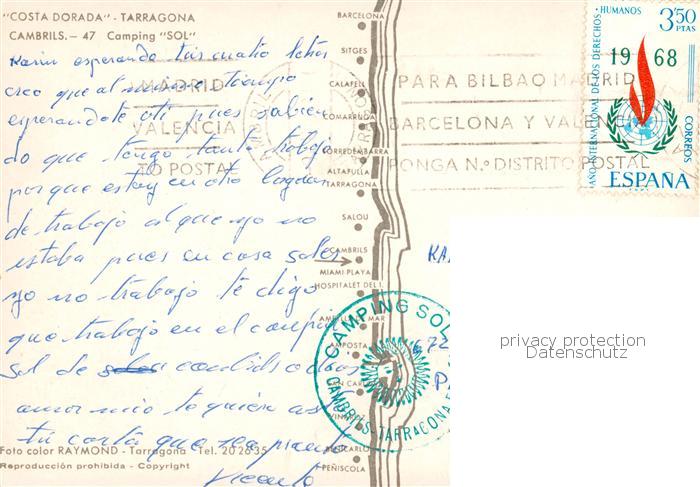 "COSTA DORADA" - TARRAGONA
CAMBRILS.- 47 Camping "SOL"
Karin esperando tus cuatro letras
creo que al mismo tiempo
esperandote a ti pues sabien
do que tengo tanto trabajo
porque estoy en otro lugar
de trabajo al que yo no
estaba pues en casa
yo no trabajo te digo
que trabajo en el campin
sol de cambrils
amor mio te quiere
tu carta que sea pronto
Vicente
Foto color RAYMOND - Tarragona Tel. 20 26 35
Reproducción prohibida - Copyright
BARCELONA
SITGES
CALAFELL
COMARRUGA
TORREDEMBARRA
ALTAFULLA
TARRAGONA
SALOU
CAMBRILS
MIAMI-PLAYA
HOSPITALET DEL I.
AMETLLA MAR
AMPOSTA
SAN CARLOS
VINAROZ
BENICARLO
PEÑISCOLA
MADRID
VALENCIA
TO POSTAL
PARA BILBAO MADRID
BARCELONA Y VALEN
PONGA N.º DISTRITO POSTAL
AÑO INTERNACIONAL DE LOS DERECHOS HUMANOS
3'50
PTAS
1968
CORREOS
ESPAÑA
CAMPING SOL
CAMBRILS-TARRAGONA
KA
672
PA
privacy protection
Datenschutz